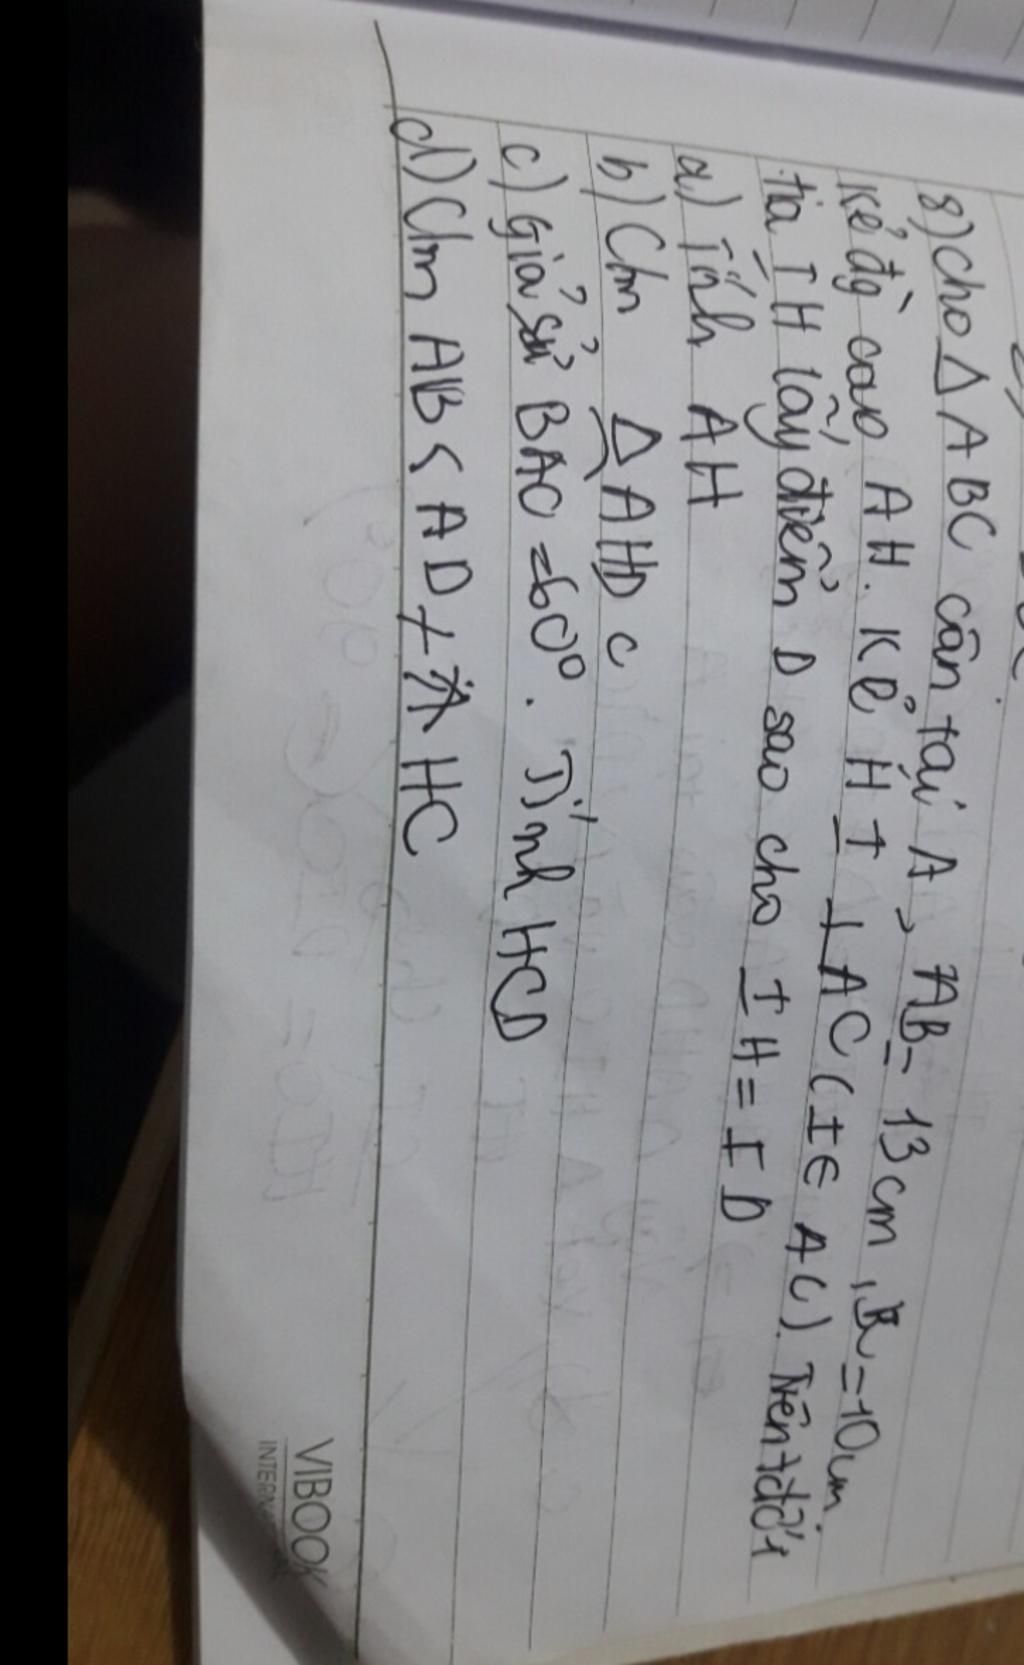 8) Cho △ ABC cân tại A, AB = 13cm, BC = 10cm
Kẻ đg cao AH. Kẻ HI ⊥ AC (I ∈ AC). Trên t đối
tia IH lấy điểm D sao cho IH = ID
a) Tính AH
b) Cm △ AHD c
c) Giả sử BAC = 60°. Tính HCD
d) Cm AB < AD + HC
VIBOOK